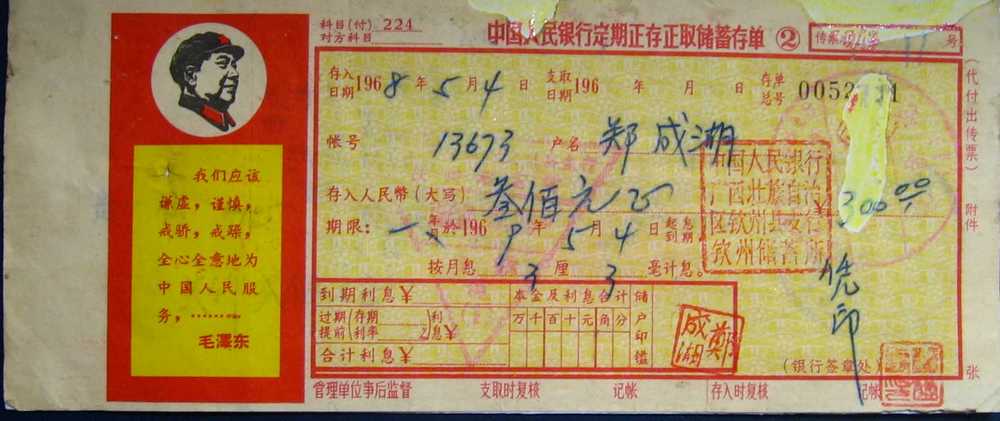 科目(付) 224
对方科目
中国人民银行定期正存正取储蓄存单 ②
传票 号
(代付出传票)
附件
张
我们应该
谦虚，谨慎，
戒骄，戒躁，
全心全意地为
中国人民服
务，………
毛泽东
存入日期 1968年5月4日 支取日期 196 年 月 日 存单总号 0052
帐号 13673 户名 郑成湖
存入人民幣(大写) 叁佰元正 ¥300.00
期限：一年 於1969年5月4日 起息到期
按月息3厘3毫计息。
凭印
中国人民银行
广西壮族自治
区钦州县支行
钦州储蓄所
到期利息¥
过期(存期 )利
提前(利率 )息¥
合计利息¥
本金及利息合计
万千百十元角分
储户印鑑
郑成湖
(银行签章处)
管理单位事后监督 支取时复核 记帐 存入时复核 记帐